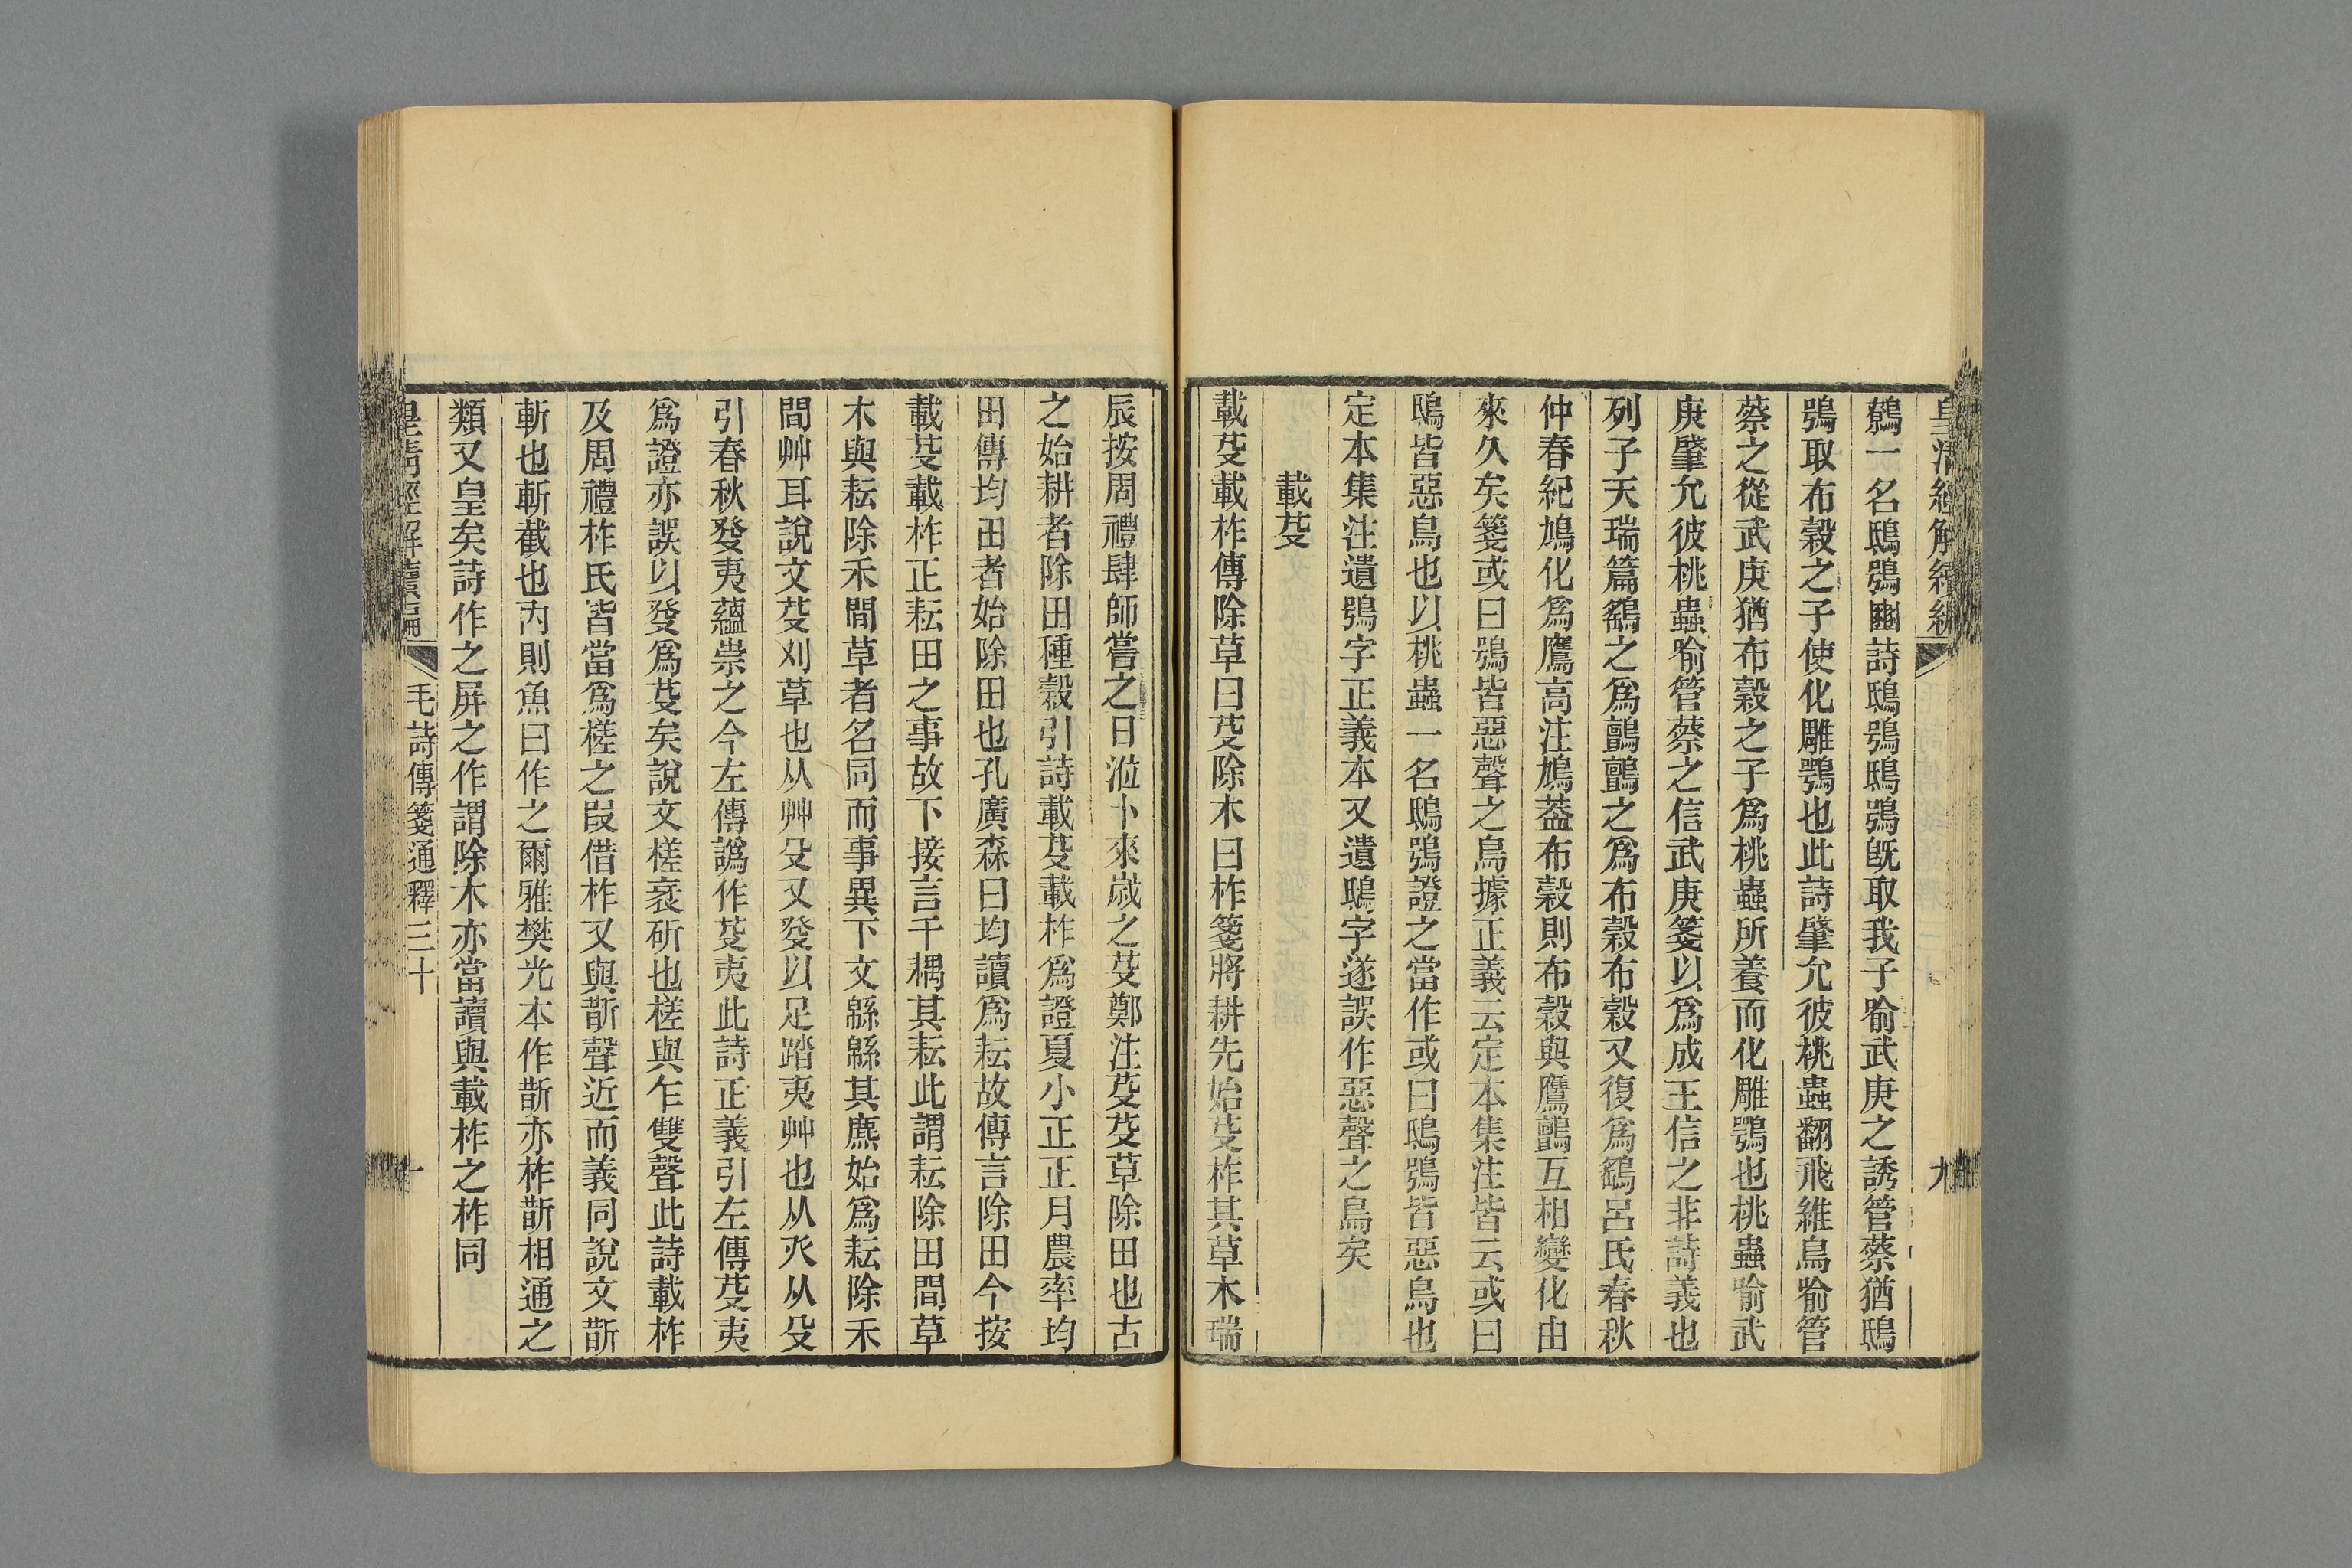 皇清經解續編
九
鴟一名鴟鴞豳詩鴟鴞鴟鴞旣取我子喻武庚之誘管蔡猶鴟
鴞取布穀之子使化雕鶚也此詩肇允彼桃蟲翻飛維鳥喻管
蔡之從武庚猶布穀之子爲桃蟲所養而化雕鶚也桃蟲喻武
庚肇允彼桃蟲喻管蔡之信武庚箋以爲成王信之非詩義也
列子天瑞篇鷂之爲鸇鸇之爲布穀布穀又復爲鷂呂氏春秋
仲春紀鳩化爲鷹高注鳩蓋布穀則布穀與鷹鸇互相變化由
來久矣箋或曰鴞皆惡聲之鳥據正義云定本集注皆云或曰
鴟皆惡鳥也以桃蟲一名鴟鴞證之當作或曰鴟鴞皆惡鳥也
定本集注遺鴞字正義本又遺鴟字遂誤作惡聲之鳥矣
載芟
載芟載柞傳除草曰芟除木曰柞箋將耕先始芟柞其草木瑞
辰按周禮肆師嘗之日涖卜來歲之芟鄭注芟芟草除田也古
之始耕者除田種穀引詩載芟載柞爲證夏小正正月農率均
田傳均田者始除田也孔廣森曰均讀爲耘故傳言除田今按
載芟載柞正耘田之事故下接言千耦其耘此謂耘除田間草
木與耘除禾間草者名同而事異下文緜緜其麃始爲耘除禾
間艸耳說文芟刈草也从艸殳又癹以足踏夷艸也从癶从殳
引春秋癹夷蘊崇之今左傳譌作芟夷此詩正義引左傳芟夷
爲證亦誤以癹爲芟矣說文槎衺斫也槎與乍雙聲此詩載柞
及周禮柞氏皆當爲槎之叚借柞又與斮聲近而義同說文斮
斬也斬截也內則魚曰作之爾雅樊光本作斮亦柞斮相通之
類又皇矣詩作之屏之作謂除木亦當讀與載柞之柞同
皇清經解續編
毛詩傳箋通釋三十